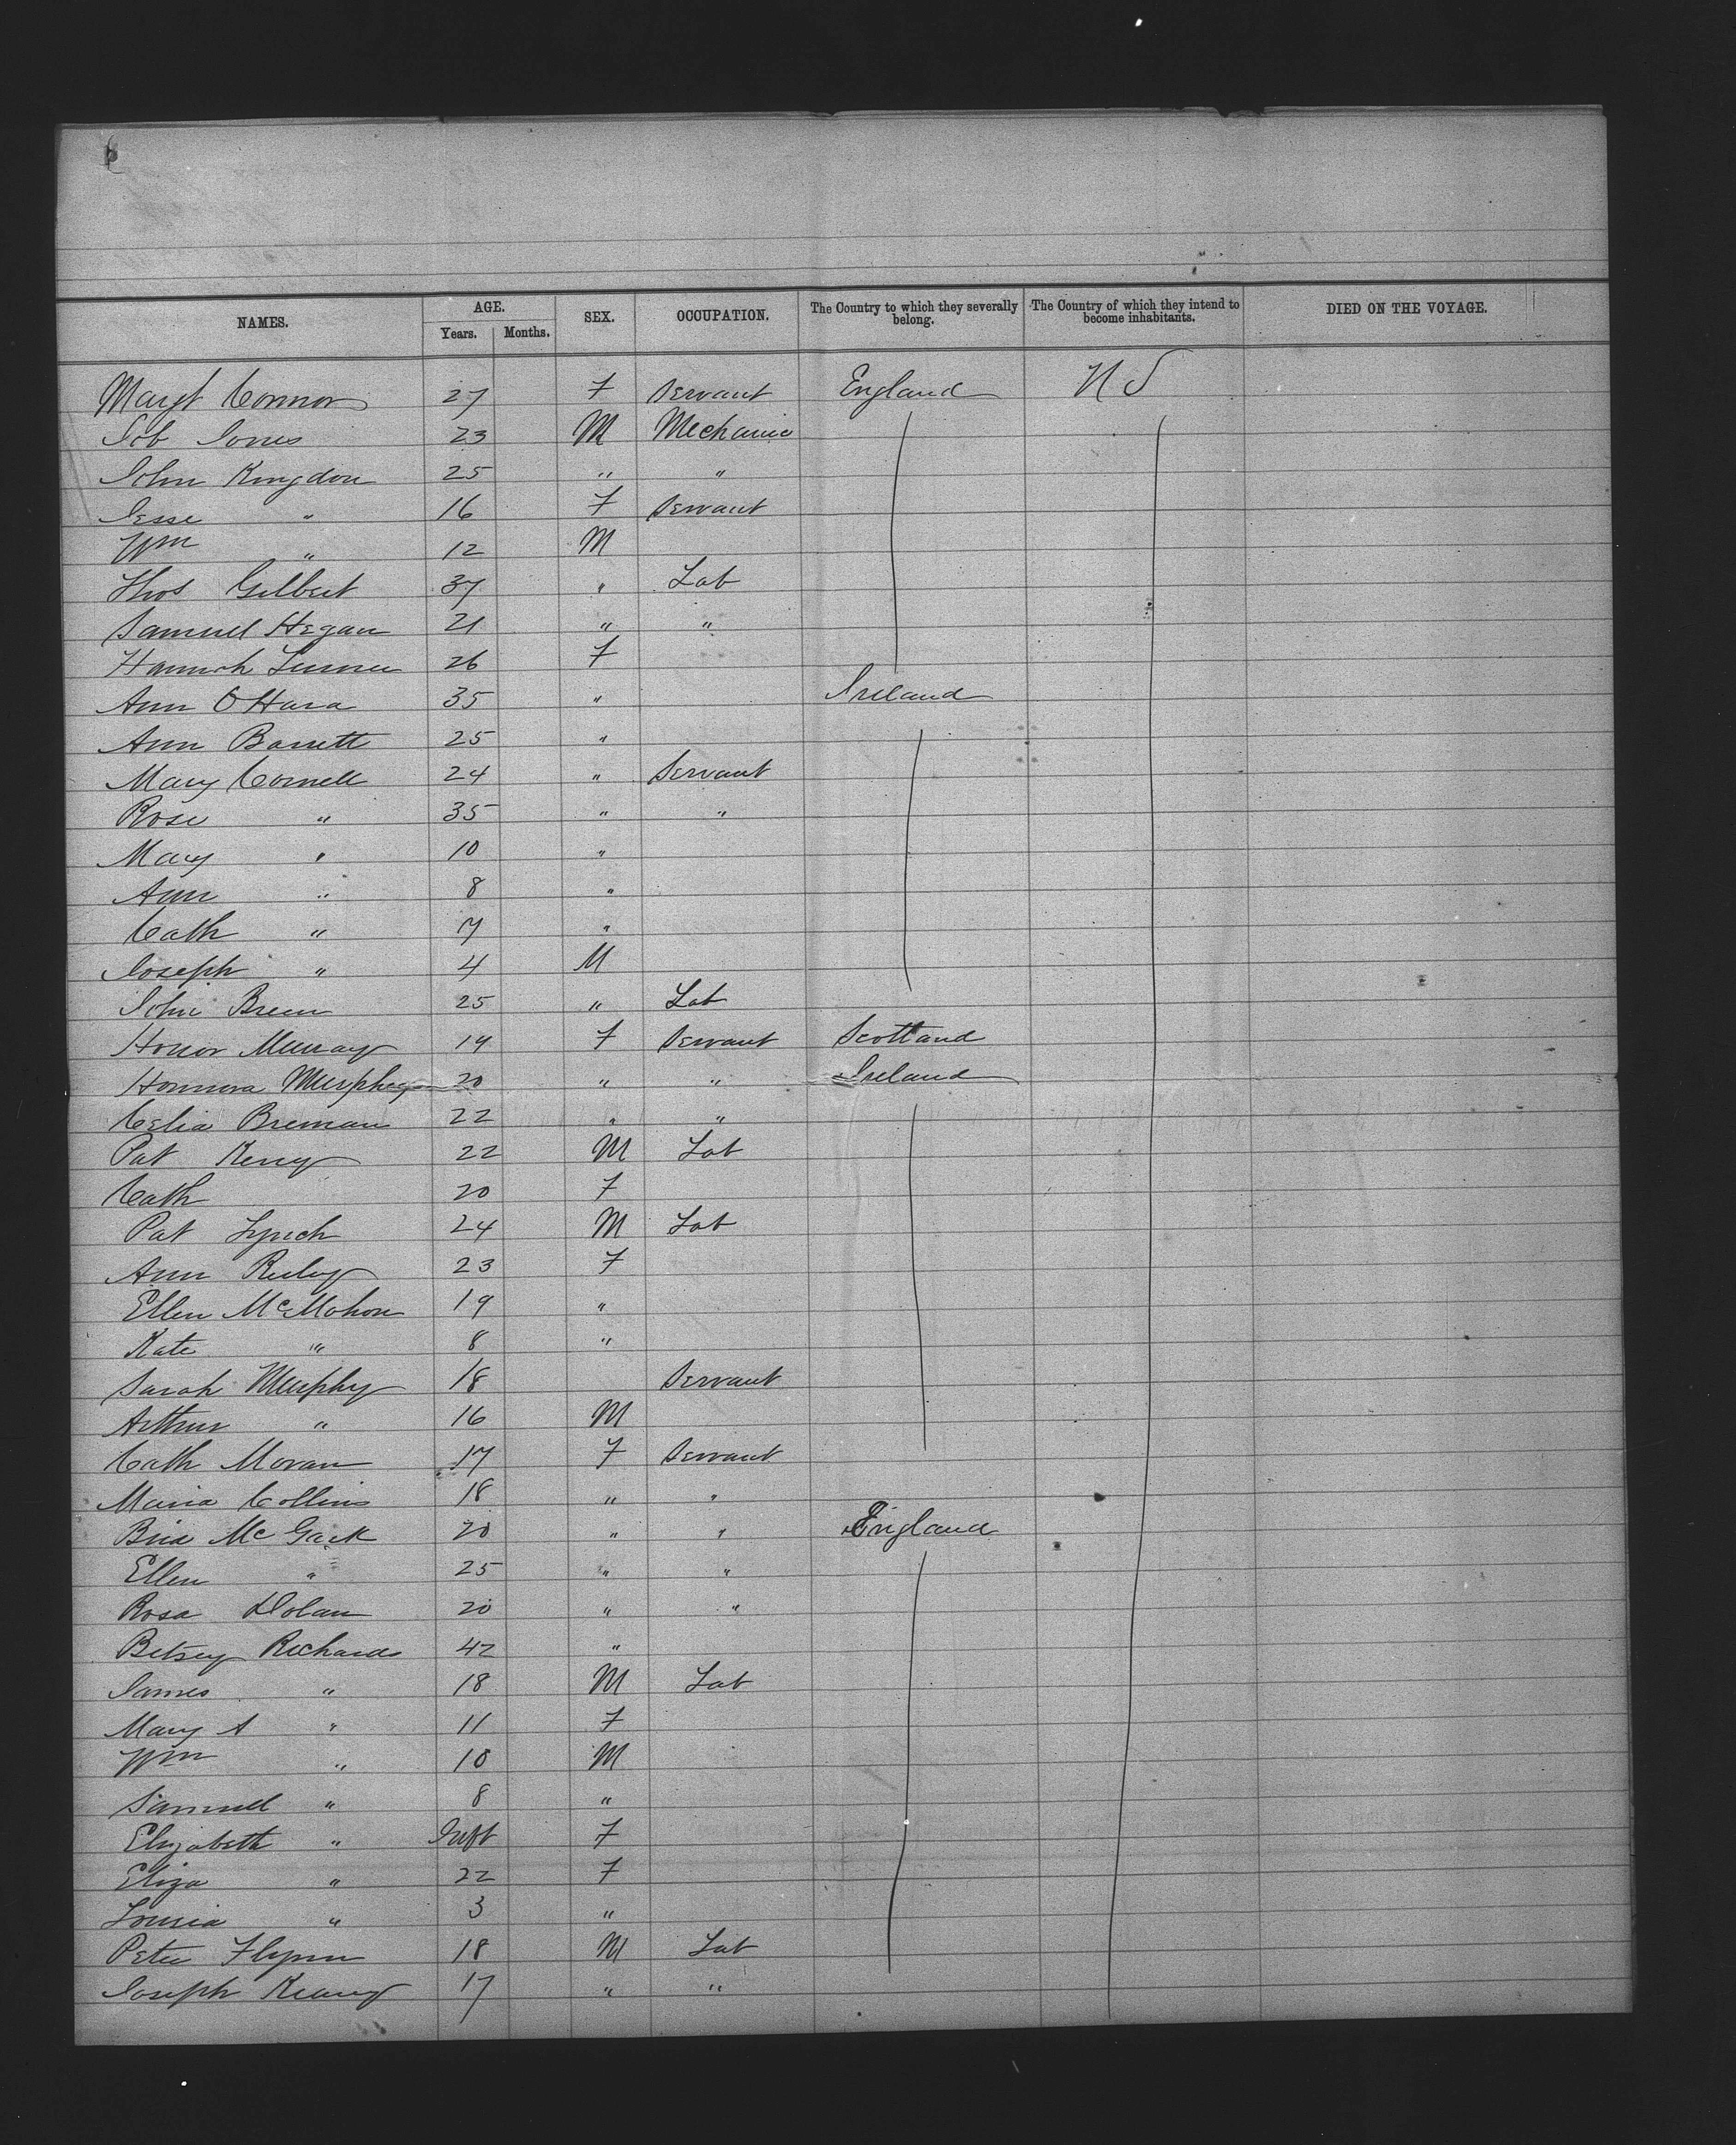 6
NAMES. AGE. SEX. OCCUPATION. The Country to which they severally belong. The Country of which they intend to become inhabitants. DIED ON THE VOYAGE.
Years. Months.
Margt Connor 27 F Servant England U S
Job Jones 23 M Mechanic
John Kingdon 25 " "
Jesse " 16 F Servant
Wm " 12 M
Thos Gilbert 37 " Lab
Samuel Hegan 21 " "
Hannah 26 F
Ann O Hara 35 " Ireland
Ann Barrett 25 "
Mary Connell 24 " Servant
Rose " 35 " "
Mary " 10 "
Ann " 8 "
Cath " 7 "
Joseph " 4 M
John Breen 25 " Lab
Honor Murray 19 F Servant Scotland
Honnora Murphy 20 " " Ireland
Celia Brennan 22 " "
Pat Kerry 22 M Lab
Cath 20 F
Pat Lynch 24 M Lab
Ann 23 F
Ellen McMahon 19 "
Kate " 8 "
Sarah Murphy 18 Servant
Arthur " 16 M
Cath Moran 17 F Servant
Maria Collins 18 " "
Brid Mc 20 " " England
Ellen " 25 " "
Rosa Dolan 20 " "
Betsey Richards 42 "
James " 18 M Lab
Mary A " 11 F
Wm " 10 M
Samuel " 8 "
Elizabeth " Inft F
Eliza " 22 F
Louisa " 3 "
Peter Flynn 18 M Lab
Joseph 17 " "